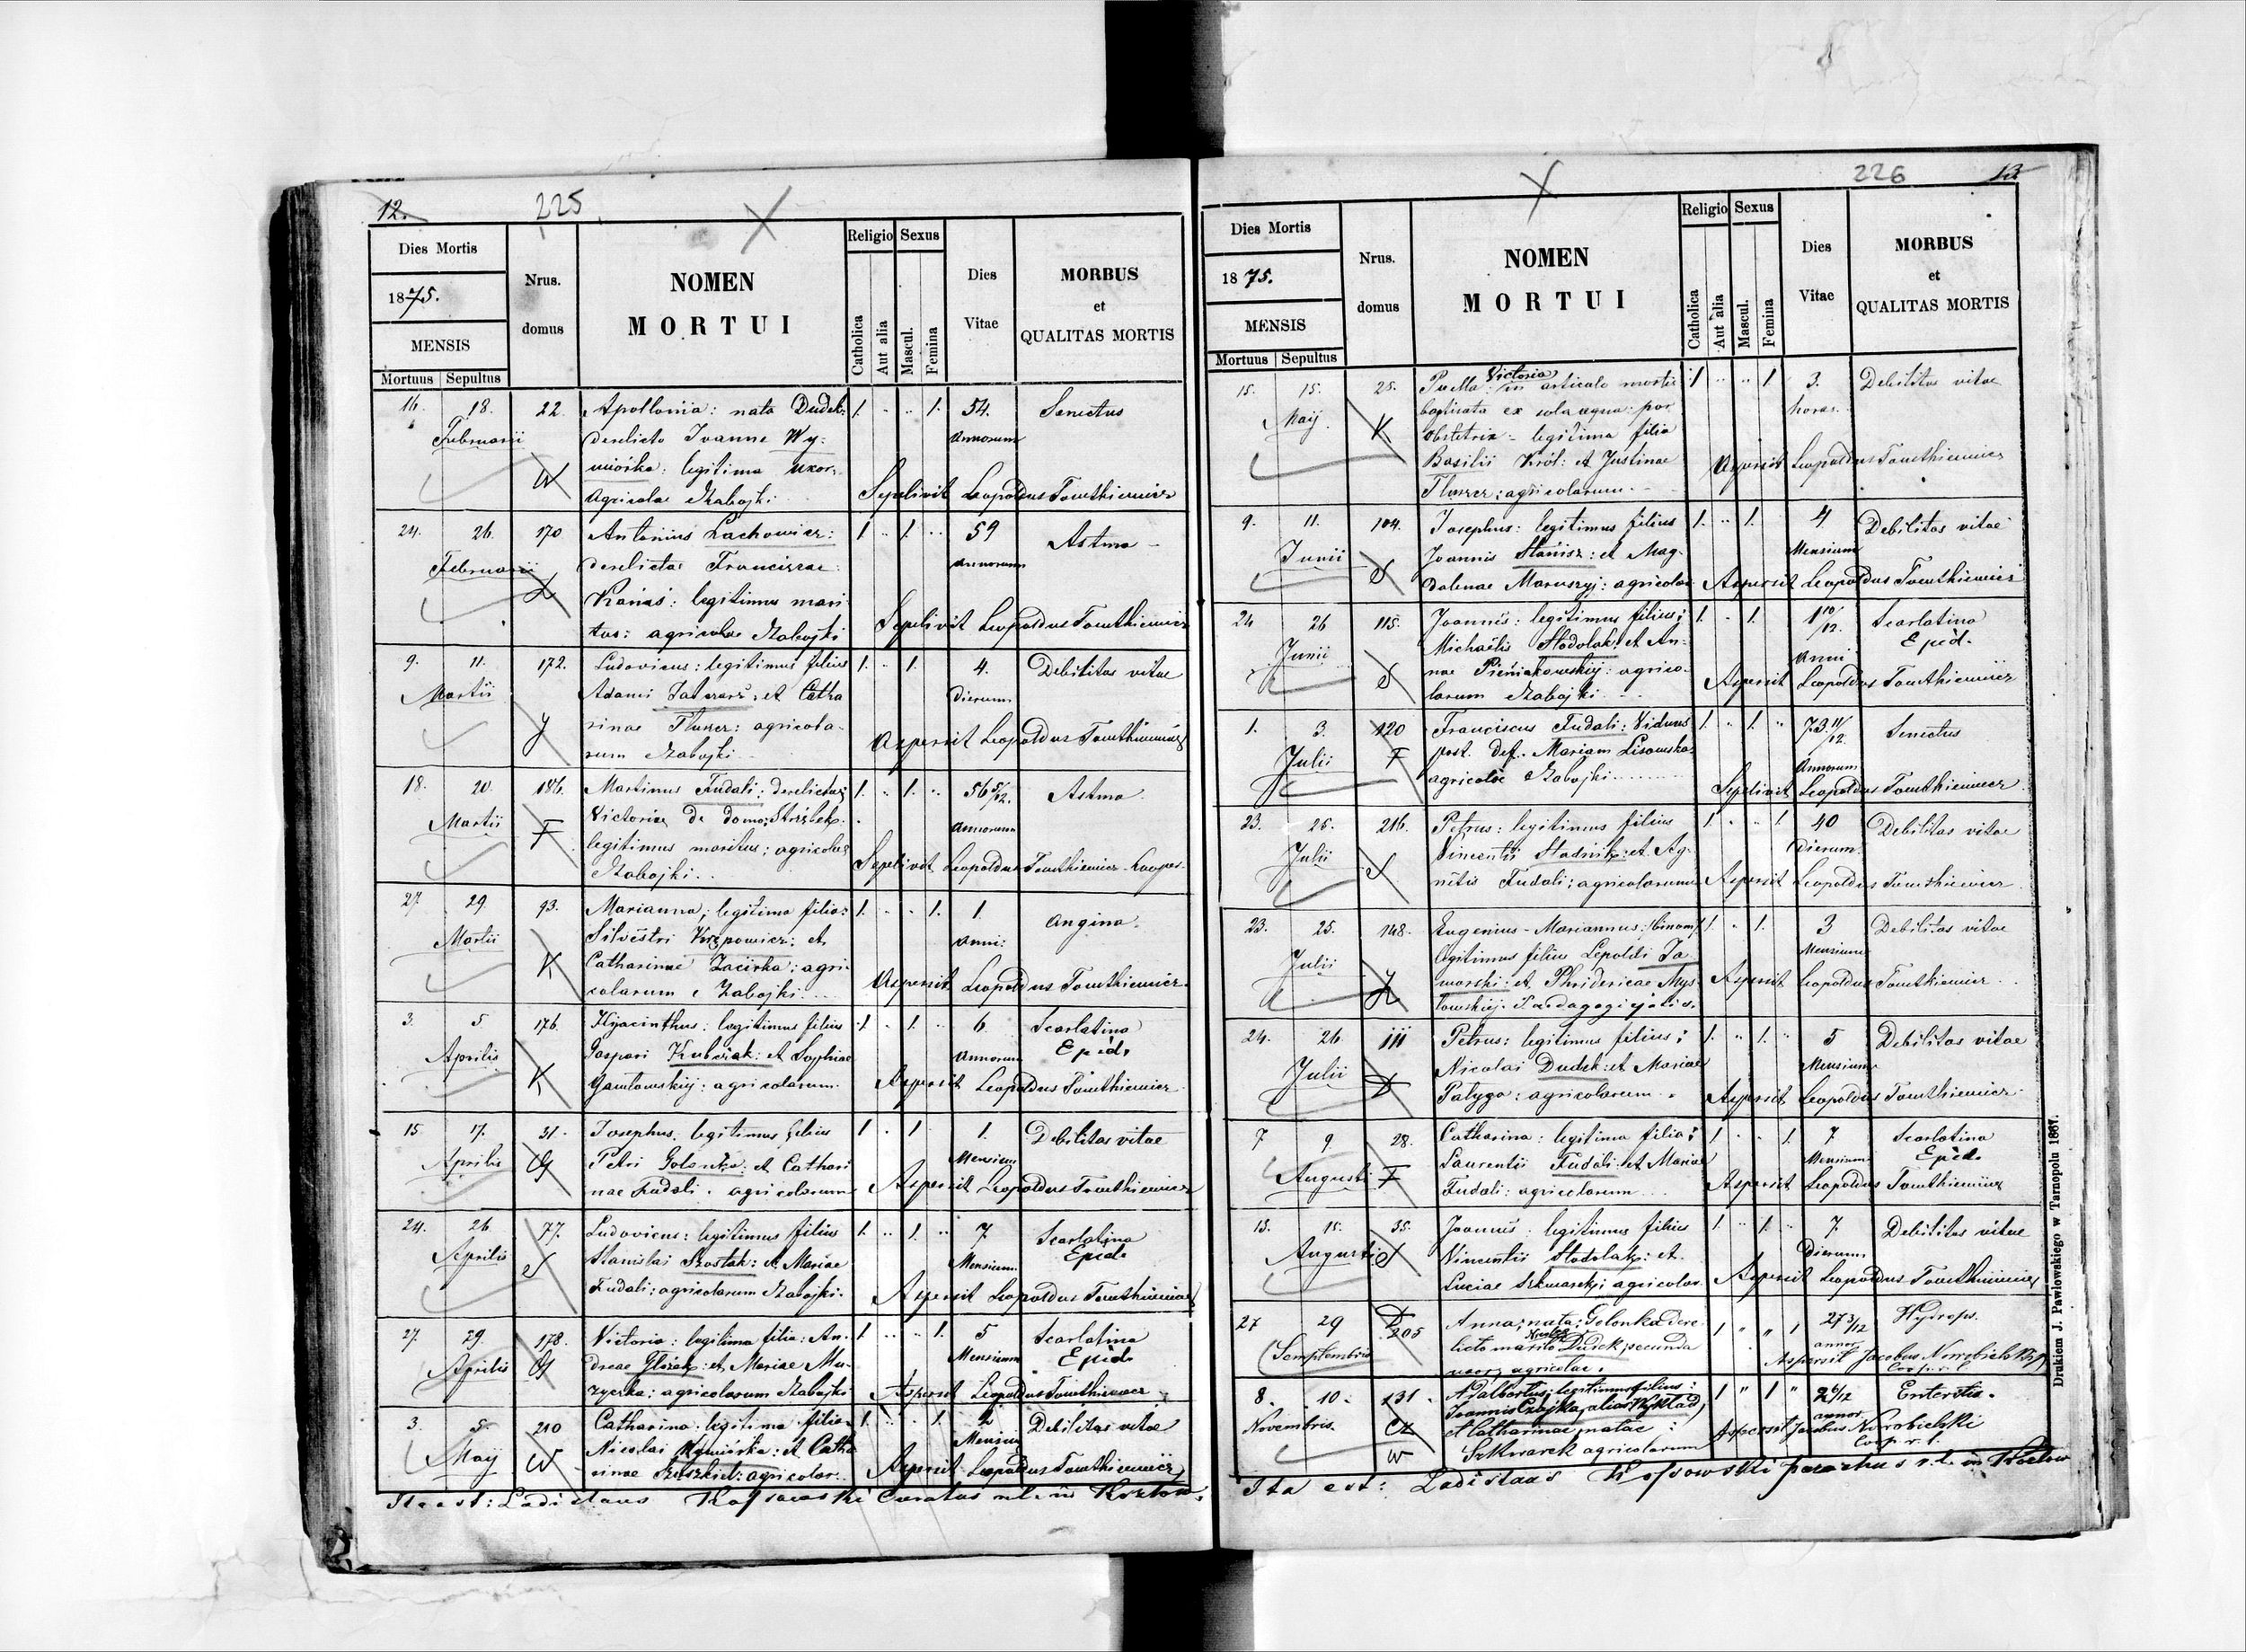 12.
225
X
Dies Mortis
1875.
MENSIS
Mortuus Sepultus
Nrus. domus
NOMEN
MORTUI
Religio
Catholica
Aut alia
Sexus
Mascul.
Femina
Dies Vitae
MORBUS
et
QUALITAS MORTIS
16. 18. 22. Apollonia: nata Dudek: 1. 1. 54. Senectus
Februarii derelicto Ioanne Wy- Annorum
W miórka: legitima uxor
agricolae Zabojki Sepelivit Leopoldus Tomthiewicz
24. 26. 170 Antonius Lachowicz: 1 1. 59 Astma
Februarii derelictae Franciscae Annorum
L Kanas: legitimus mari-
tus: agricolae Zabojki Sepelivit Leopoldus Tomthiewicz
9. 11. 172. Ludovicus: legitimus filius 1. 1. 4. Debilitas vitae
Martii Adami et Catha Dierum
J rinae Fluder: agricola-
rum Zabojki Aspersit Leopoldus Tomthiewicz
18. 20. 186. Martinus Fudali: derelictae 1. 1. 56 5/12. Astma
Martii Victoriae de domo: Annorum
F legitimus maritus: agricolae
Zabojki. Sepelivit Leopoldus Tomthiewicz
27. 29. 93. Marianna: legitima filia: 1. 1. 1. Angina
Martii Silvestri et Anni:
K Catharinae Zacirka: agri-
colarum e Zabojki Aspersit Leopoldus Tomthiewicz
3. 5 176. Hyacinthus: legitimus filius 1 1. 6. Scarlatina
Aprilis Gaspari Kubciak: et Sophiae Annorum Epid.
K agricolarum Aspersit Leopoldus Tomthiewicz
15. 17. 31. Josephus legitimus filius 1 1 1. Debilitas vitae
Aprilis G Petri Golonka: et Cathari Mensium
nae Fudali. agricolarum Aspersit Leopoldus Tomthiewicz
24. 26 77. Ludovicus: legitimus filius 1. 1. 7 Scarlatina
Aprilis S Stanislai Szostak: et Mariae Mensium Epid.
Fudali: agricolarum Zabojki. Aspersit Leopoldus Tomthiewicz
27. 29. 178. Victoria: legitima filia: An- 1. 1. 5 Scarlatina
Aprilis G dreae et Mariae Mu- Mensium Epid.
zyczka: agricolarum Zabojki Aspersit Leopoldus Tomthiewicz
3. 5. 210 Catharina: legitima filia 1. 1. 2 Debilitas vitae
Maij W Nicolai Wymiórka: et Catha Mensium
rinae agricolar. Aspersit Leopoldus Tomthiewicz
Ita est: Ladislaus Kossowski Curatus r. l. in Kozlow.
226
13
X
Dies Mortis
1875.
MENSIS
Mortuus Sepultus
Nrus. domus
NOMEN
MORTUI
Religio
Catholica
Aut alia
Sexus
Mascul.
Femina
Dies Vitae
MORBUS
et
QUALITAS MORTIS
15. 15. 25. Puella: Victoria in articulo mortis 1 1 3. Debilitas vitae
Maij baptisata ex sola aqua: per horar.
K obstetrix - legitima filia
Basilii Król: et Justinae Aspersit Leopoldus Tomthiewicz
agricolarum.
9. 11. 104. Josephus: legitimus filius 1. 1. 4 Debilitas vitae
Junii Joannis Stanisz: et Mag- Mensium
S dalenae agricolar Aspersit Leopoldus Tomthiewicz
24 26 115. Joannis: legitimus filius; 1. 1. 1 10/12. Scarlatina
Junii Michaelis Stodolak: et An- Anni Epid.
S nae Pieniakowskij: agrico-
larum Zabojki Aspersit Leopoldus Tomthiewicz
1. 3. 120 Franciscus Fudali: Viduus 1. 1. 73 11/12. Senectus
Julii F post. def. Mariam Lisowska Annorum
agricolae Zabojki Sepelivit Leopoldus Tomthiewicz
23. 25. 216. Petrus: legitimus filius 1. 1 40 Debilitas vitae
Julii S Vincentii Stadnik: et Ag- Dierum
netis Fudali: agricolarum Aspersit Leopoldus Tomthiewicz
23. 25. 148. Eugenius - Mariannus: (binom) 1. 1. 3 Debilitas vitae
Julii legitimus filius Lepoldi Ja- Mensium
worski: et Phridericae Mys- Aspersit Leopoldus Tomthiewicz
lowskij.
24. 26. 111 Petrus: legitimus filius; 1. 1. 5 Debilitas vitae
Julii Nicolai Dudek: et Mariae Mensium
D Palyga: agricolarum. Aspersit Leopoldus Tomthiewicz
7 9 28. Catharina: legitima filia; 1 1. 7 Scarlatina
Augusti F Laurentii Fudali: et Mariae Mensium Epid.
Fudali: agricolarum Aspersit Leopoldus Tomthiewicz
13. 15. 35. Joannis legitimus filius 1. 1. 7 Debilitas vitae
Augusti S Vincentii Stodolak: et Dierum
Luciae Szkwarek: agricolar Aspersit Leopoldus Tomthiewicz
27 29 D 205 Anna; nata; Golonka dere- 1 1 27 3/12 Hydrops.
Septembris licto marito Dudek; secunda annor.
uxor, agricolae. Aspersit Jacobus Norobielski Coop. r. l.
8. 10. 131. Adalbertus; legitimus filius: 1 1 2 6/12 Enteritis.
Novembris. Cz Joannis Czajka, alias Wyklad, annor.
W et Catharinae natae; Aspersit Jacobus Norobielski
Szkwarek agricolarum Coop. r. l.
Ita est: Ladislaus Kossowski parochus r. l. in Kozlow
Drukiem J. Pawlowskiego w Tarnopolu 1867.